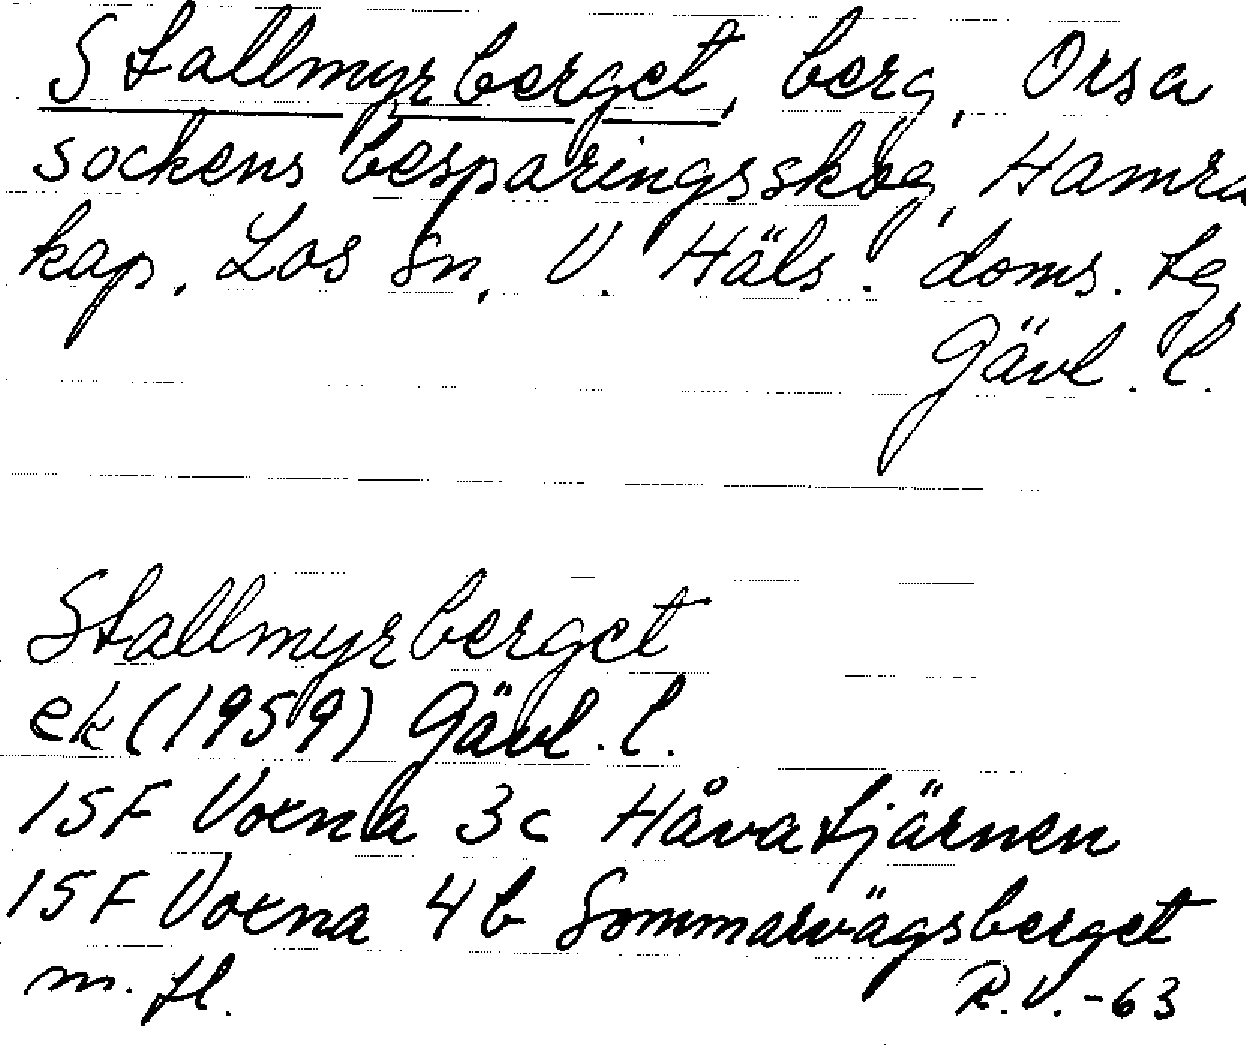 Stallmyrberget, berg, Orsa
sockens besparingsskog, Hamra
kap. Los sn, V. Häls. doms. tg,
Gävl. l.
Stallmyrberget
ek (1959) Gävl. l.
15F Voxna 3c Håvatjärnen
15F Voxna 4b Sommarvägsberget
m. fl.
R.V.-63